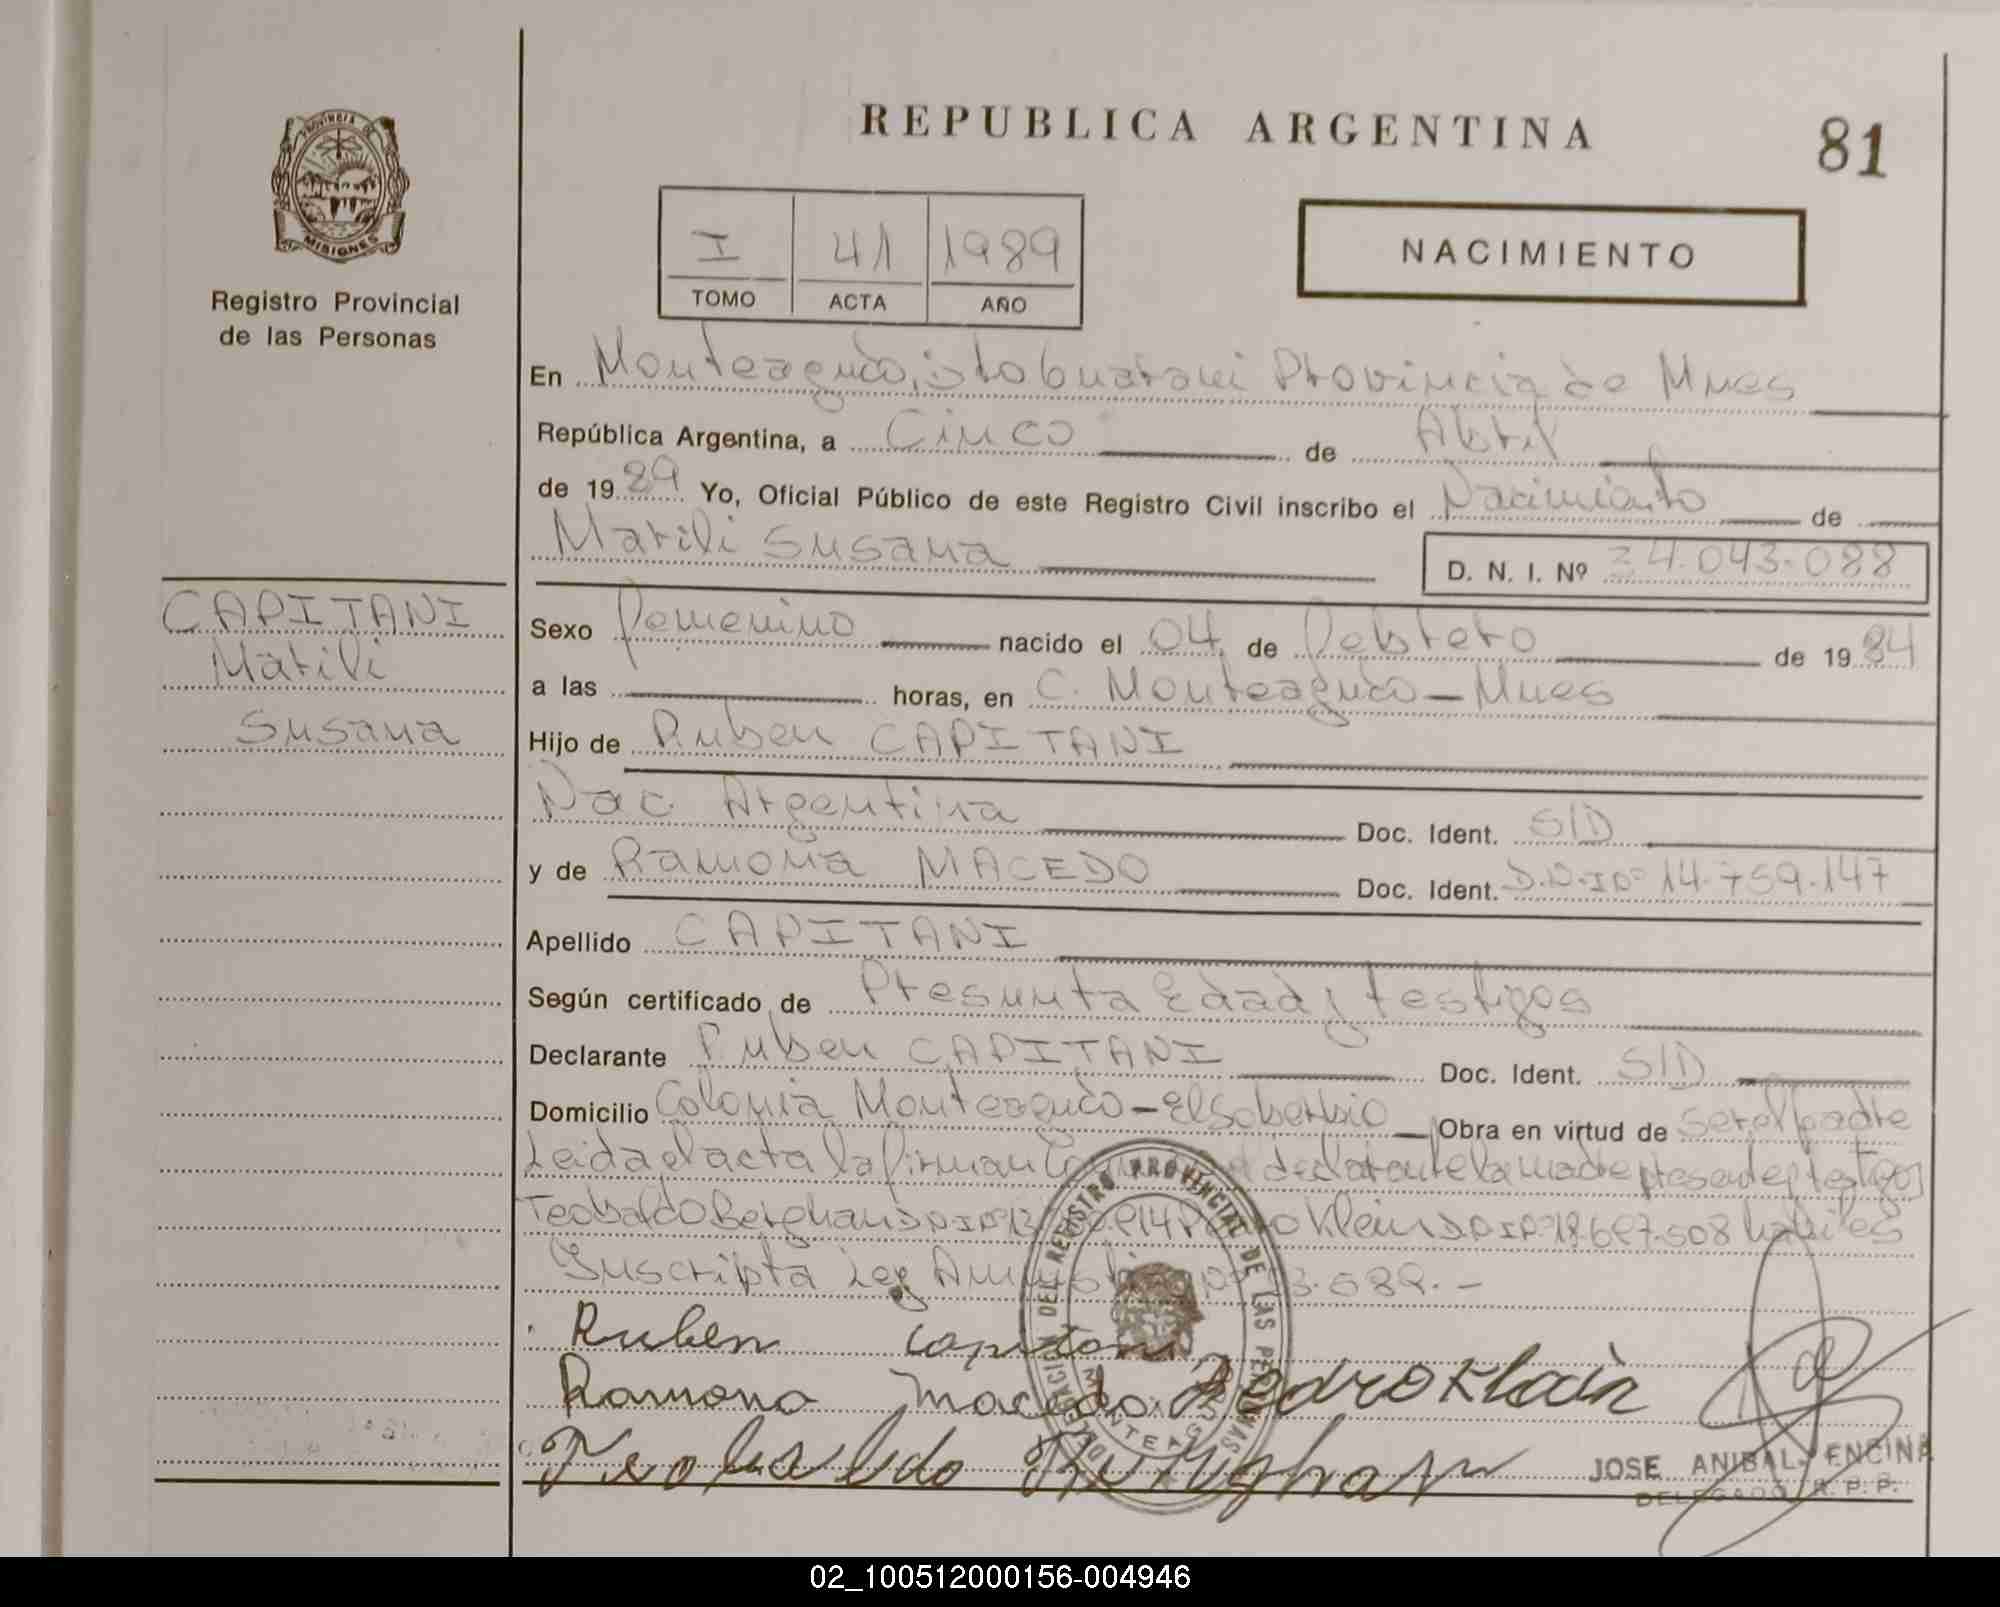 PROVINCIA DE
MISIONES
Registro Provincial
de las Personas
REPUBLICA ARGENTINA
81
I 41 1989
TOMO ACTA AÑO
NACIMIENTO
En Monteagudo, Dto Guarani Provincia de Mnes
República Argentina, a Cinco de Abril
de 1989 Yo, Oficial Público de este Registro Civil inscribo el Nacimiento de
Marili Susana
D. N. I. Nº 34.043.088
CAPITANI
Marili
Susana
Sexo Femenino nacido el 04 de Febrero de 1984
a las horas, en C. Monteagudo - Mnes
Hijo de Ruben CAPITANI
Nac. Argentina Doc. Ident. S/D
y de Ramona MACEDO Doc. Ident. D.N.I Nº 14.759.147
Apellido CAPITANI
Según certificado de Presunta Edad y testigos
Declarante Ruben CAPITANI Doc. Ident. S/D
Domicilio Colonia Monteagudo - El Soberbio Obra en virtud de ser el padre
Leida el acta la firman declarante la madre presente y testigos
Teobaldo Berghan D.N.I Nº Pedro Klein D.N.I Nº 18.697.508 habiles
Inscripta Ley Amnistia Nº 23.
DELEGACION DEL REGISTRO PROVINCIAL DE LAS PERSONAS
MONTEAGUDO
Ruben Capitani
Ramona Macedo Pedro Klain
Teobaldo Berghann
JOSE ANIBAL ENCINA
DELEGADO R. P. P.
02_100512000156-004946